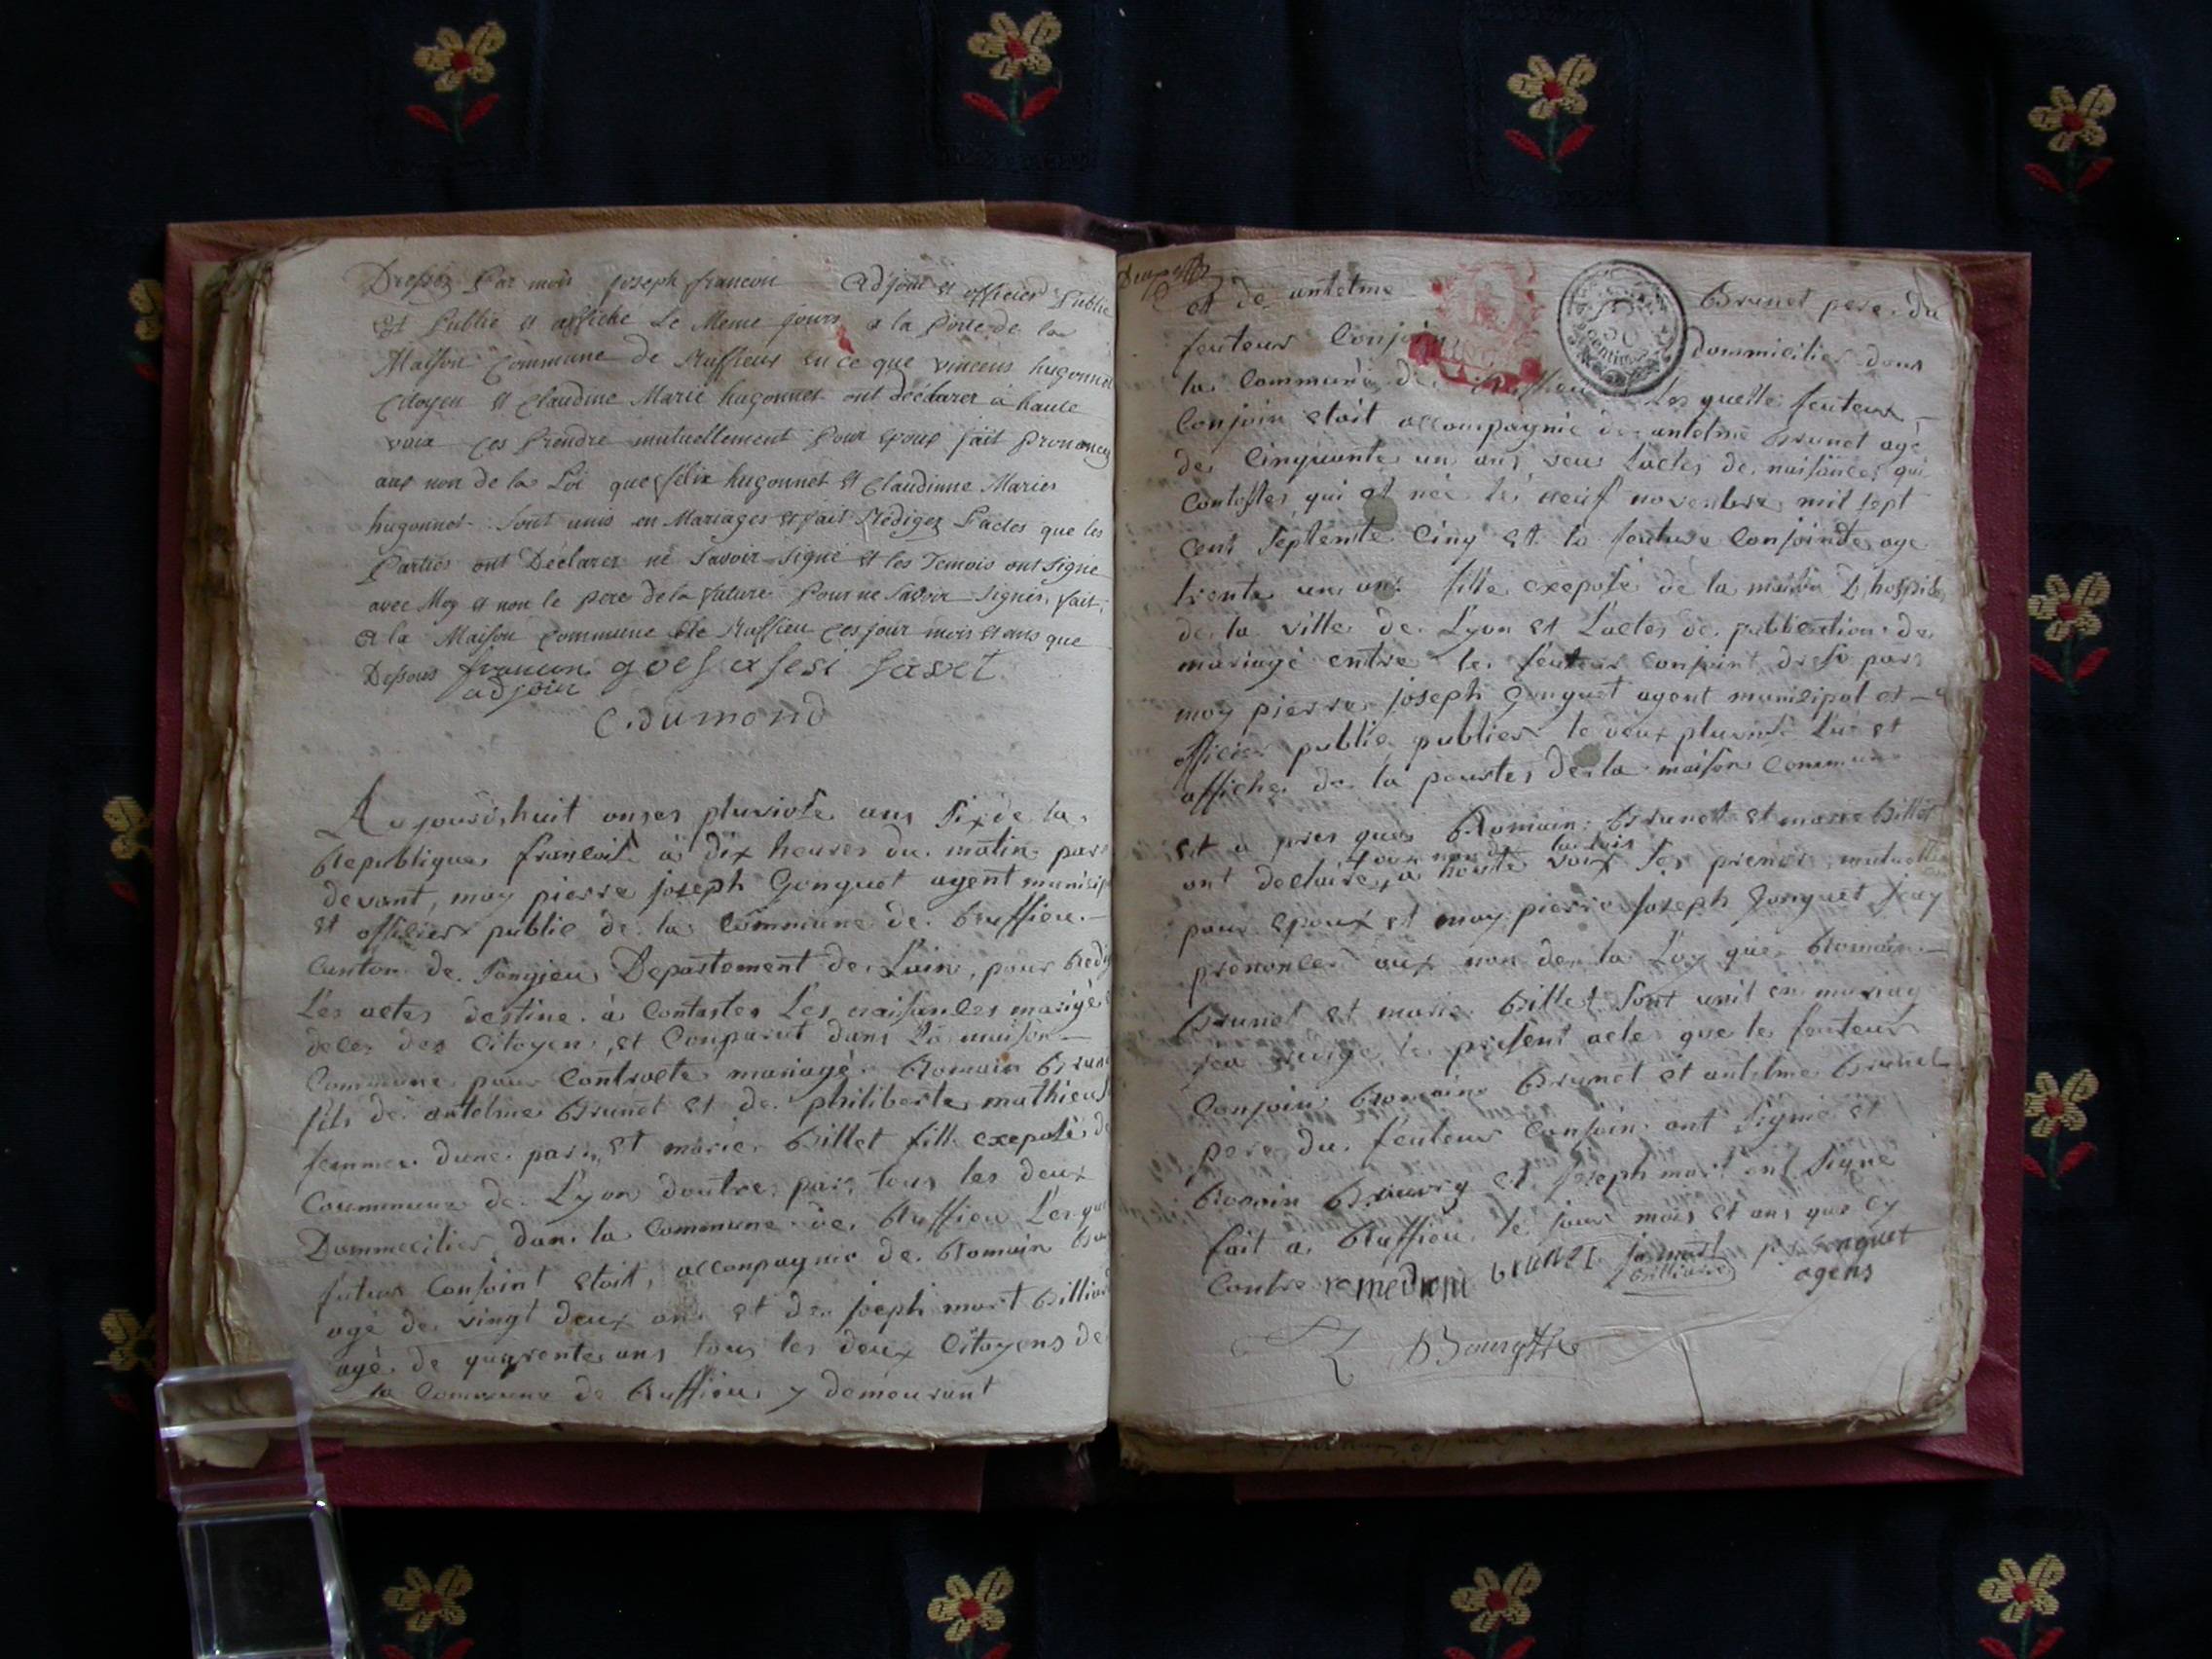 Dressez Par mois joseph francon adjoin et officier Public
Et Publié et affiche Le Meme jours a la Porte de la
Maison Commune de Ruffieux en ce que vincens hugonnet
Citoyen et Claudine Marie hugonnet ont déclarer à haute
voix ces Prendre mutuellement Pour epoux fait prononcez
aux non de la Loi que félix hugonnet et Claudinne Maries
hugonnet Sont unis en Mariages et fait Rédigez L'actes que les
Parties ont Déclarez ne Savoir Signé et les Temois ont Signé
avec Moy et non le pere de la future Pour ne Savoir Signes, fait
a la Maison Commune de Ruffieu ces jour mois et ans que
Dessus francon
adjoin
C. dumond
Aujourdhuit onzes pluviose ans Six de la
Republique francoise à dix heures du matin par
devant, moy pierre joseph Gonguet agent municip
et officier public de la Commune de Ruffieu
Canton de Songieu Departement de Lain, pour Redig
Les actes destine à Contastes Les naisances mariage
deces des Citoyen, et Comparut dans La maison
Commune pour Contracte mariagè Romain Brun
fils de antelme Brunet et de philiberte mathieu
femme dune part, et marie Billet fille exeposé de
Coummune de Lyon doutre part tous les deux
Dommecilies dans la Commune de Ruffieu Lesque
futur Conjoint etoit, acconpagnie de Romain
agé de vingt deux ans et de joseph mart Billiard
agé de quarente ans tous les deux Citoyens de
la Commune de Ruffieu y demeurant
et de antelme Brunet pere du
feuteur Conjoin Dommicilies dans
la Commune de Lesquelle feuteur
Conjoin etoit accompagnie de antelme Brunet agé
de Cinquante un ans, veu Lactes de naisance, qui
Contastes, qui et née le neuf novenbre mil sept
Cent Septente Cinq et la feuture Conjointe age
trente un ans fille exeposé de la maison D, hospice
de la ville de Lyon et Lactes de publication de
mariagé entre le feuteur Conjoint dresé par
moy pierre joseph Gonguet agent municipal et
officier public publier le deux pluviose Lu et
affiche de la pourtes de la maison Commune
et a pres que Romain Brunet et marie Billet
aux non de la lois
ont declaire a haute voix Ses prendr mutuelle
pour epoux et moy pierre joseph Gonguet jeay
prenoncé aux non de la Loy que Romain
Brunet et marie Billet Sont unit en mariag
jea redige le present acte que le feuteur
Conjoin Romain Brunet et antelme Brunet
pere du feuteur Conjoin ont Signié et
Romain et joseph mart ont Signé
fait a Ruffieu le jour mois et ans que Cy
Contre brunet jo mart p. j. Gonguet
billiard agens